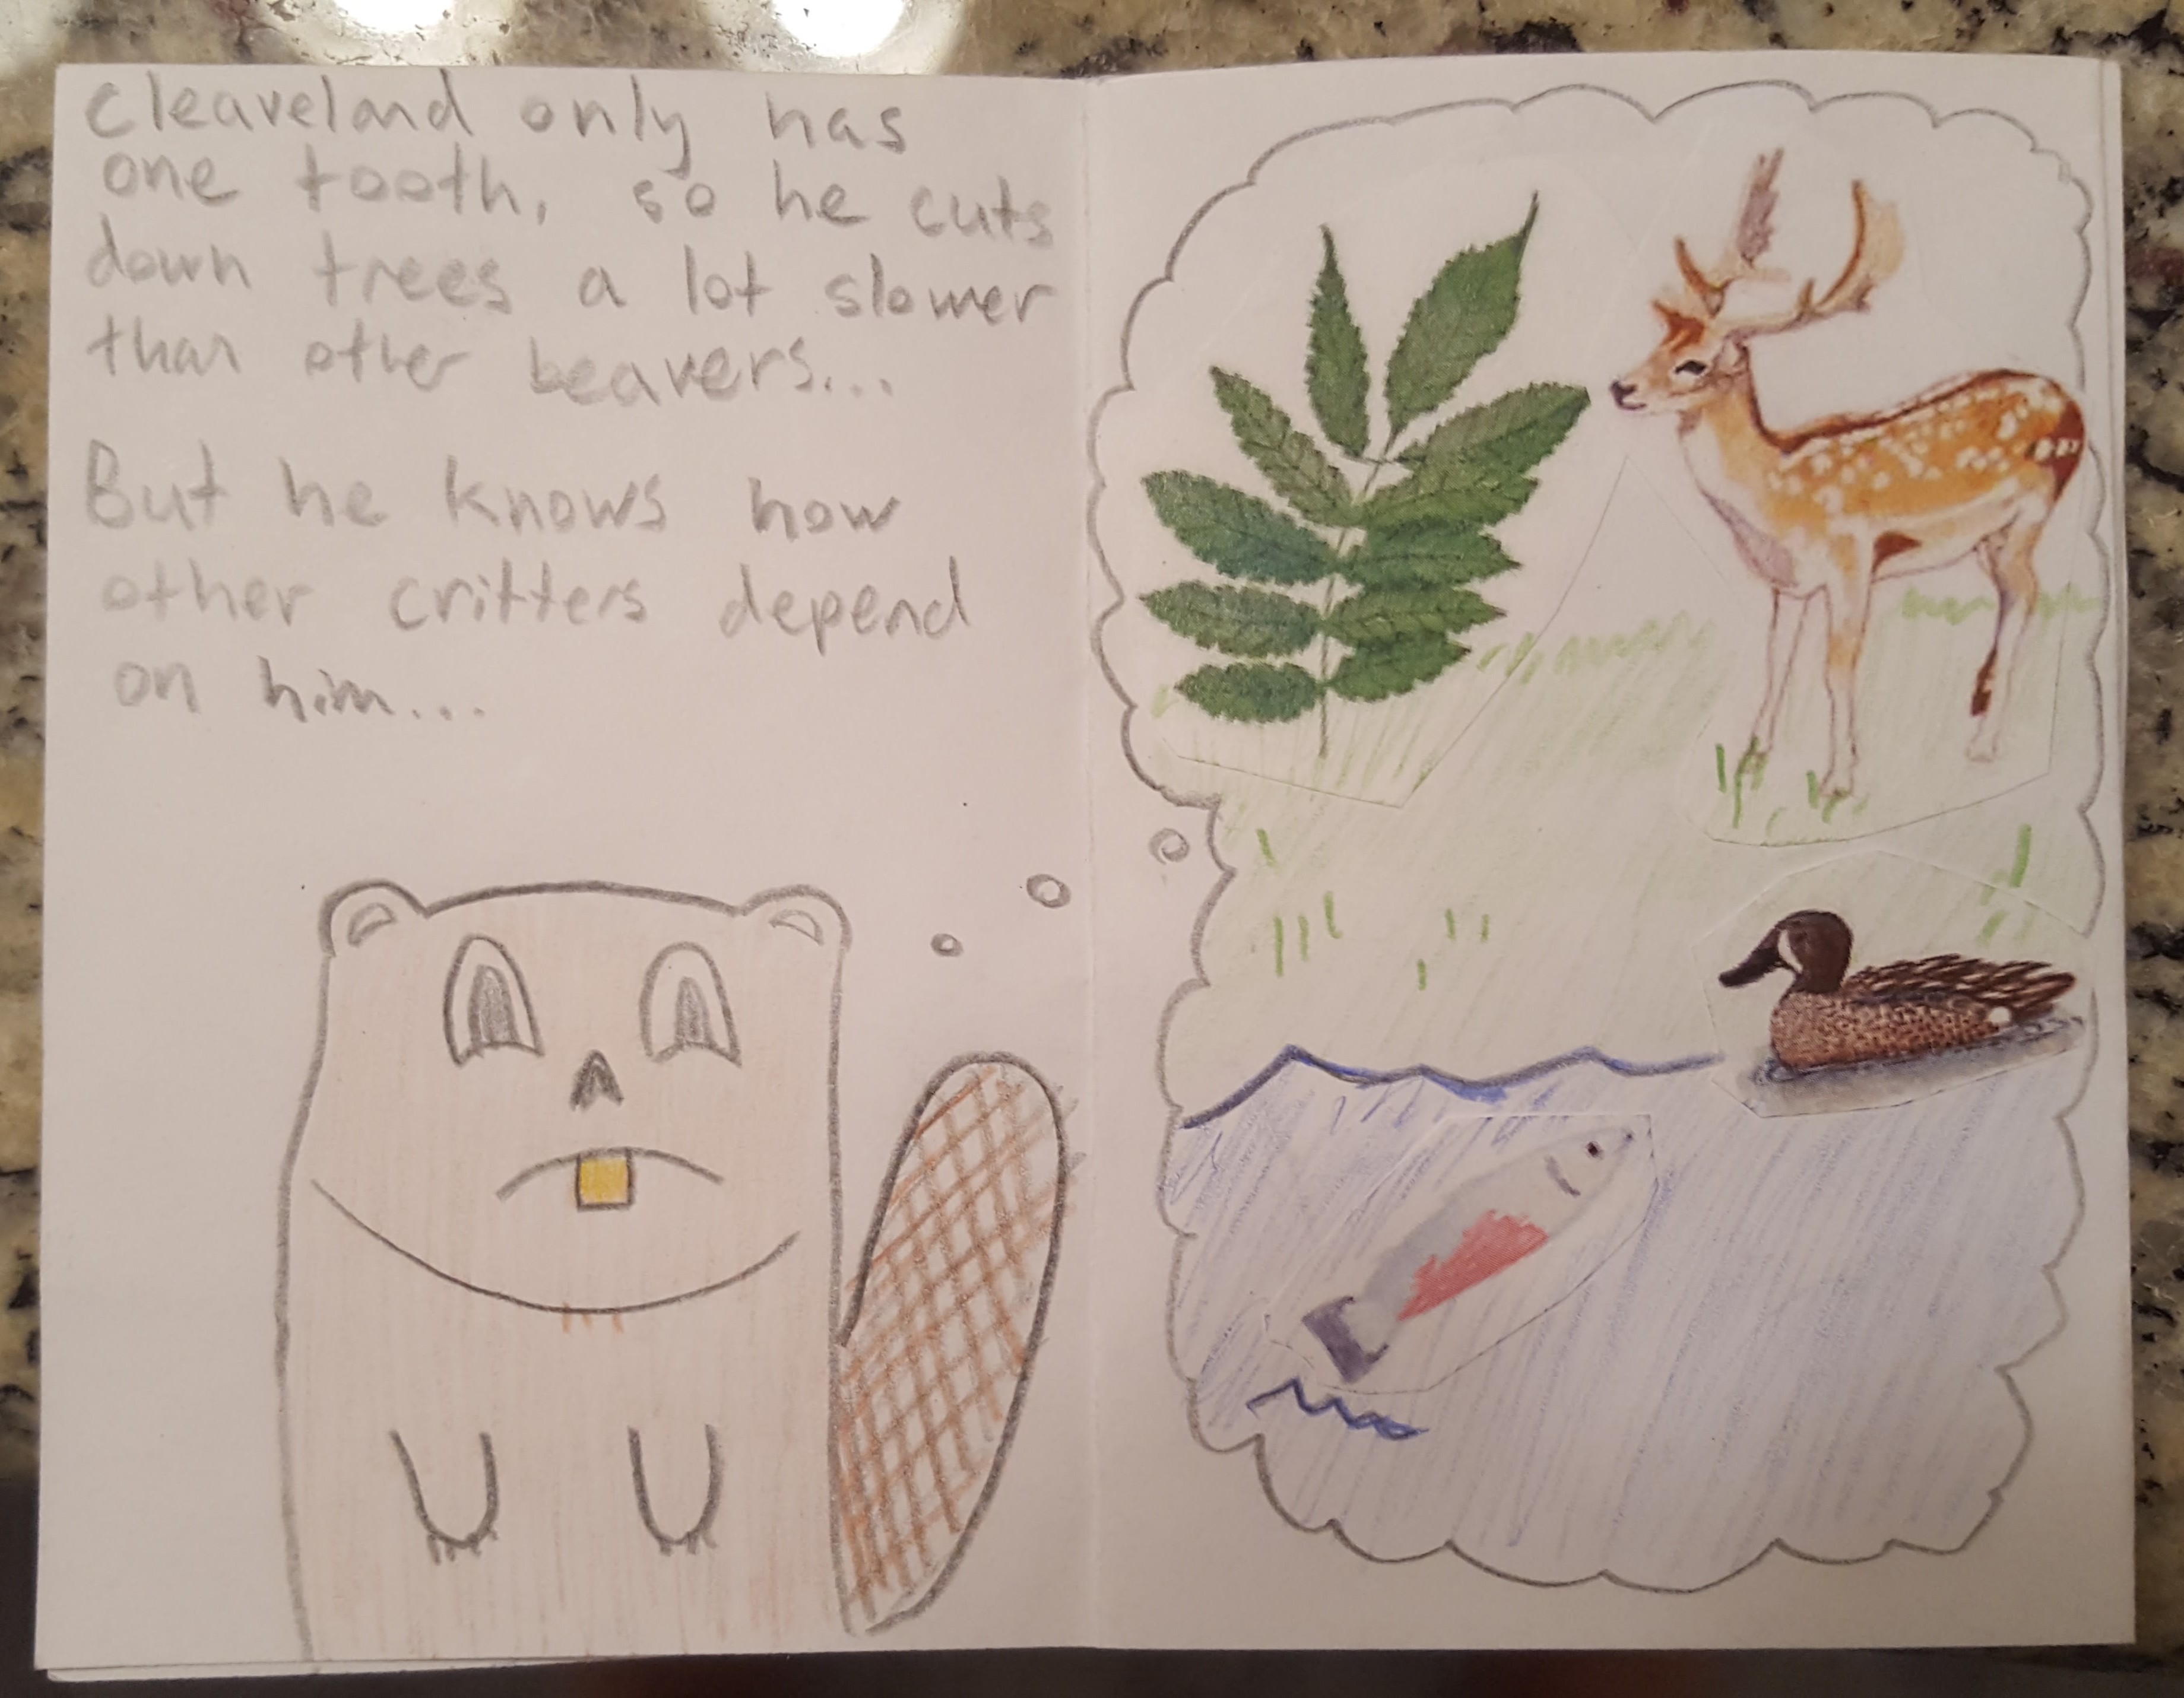 cleaveland only has
one tooth, so he cuts
down trees a lot slower
than other beavers...
But he knows how
other critters depend
on him...